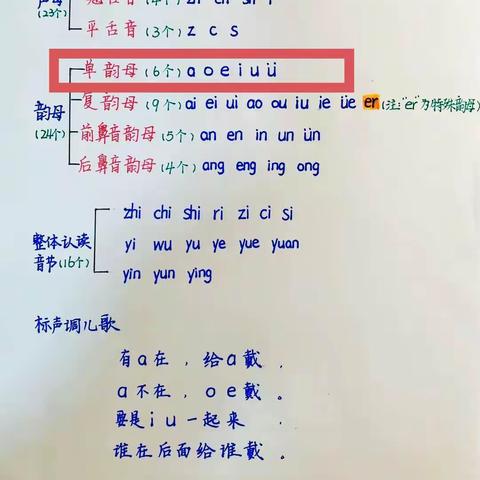 (23个)
平舌音 (3个) z c s
单韵母 (6个) a o e i u ü
韵母 (24个)
复韵母 (9个) ai ei ui ao ou iu ie üe er (注:"er"为特殊韵母)
前鼻音韵母 (5个) an en in un ün
后鼻音韵母 (4个) ang eng ing ong
整体认读音节 (16个)
zhi chi shi ri zi ci si
yi wu yu ye yue yuan
yin yun ying
标声调儿歌
有a在，给a戴，
a不在，o e戴。
要是i u一起来，
谁在后面给谁戴。